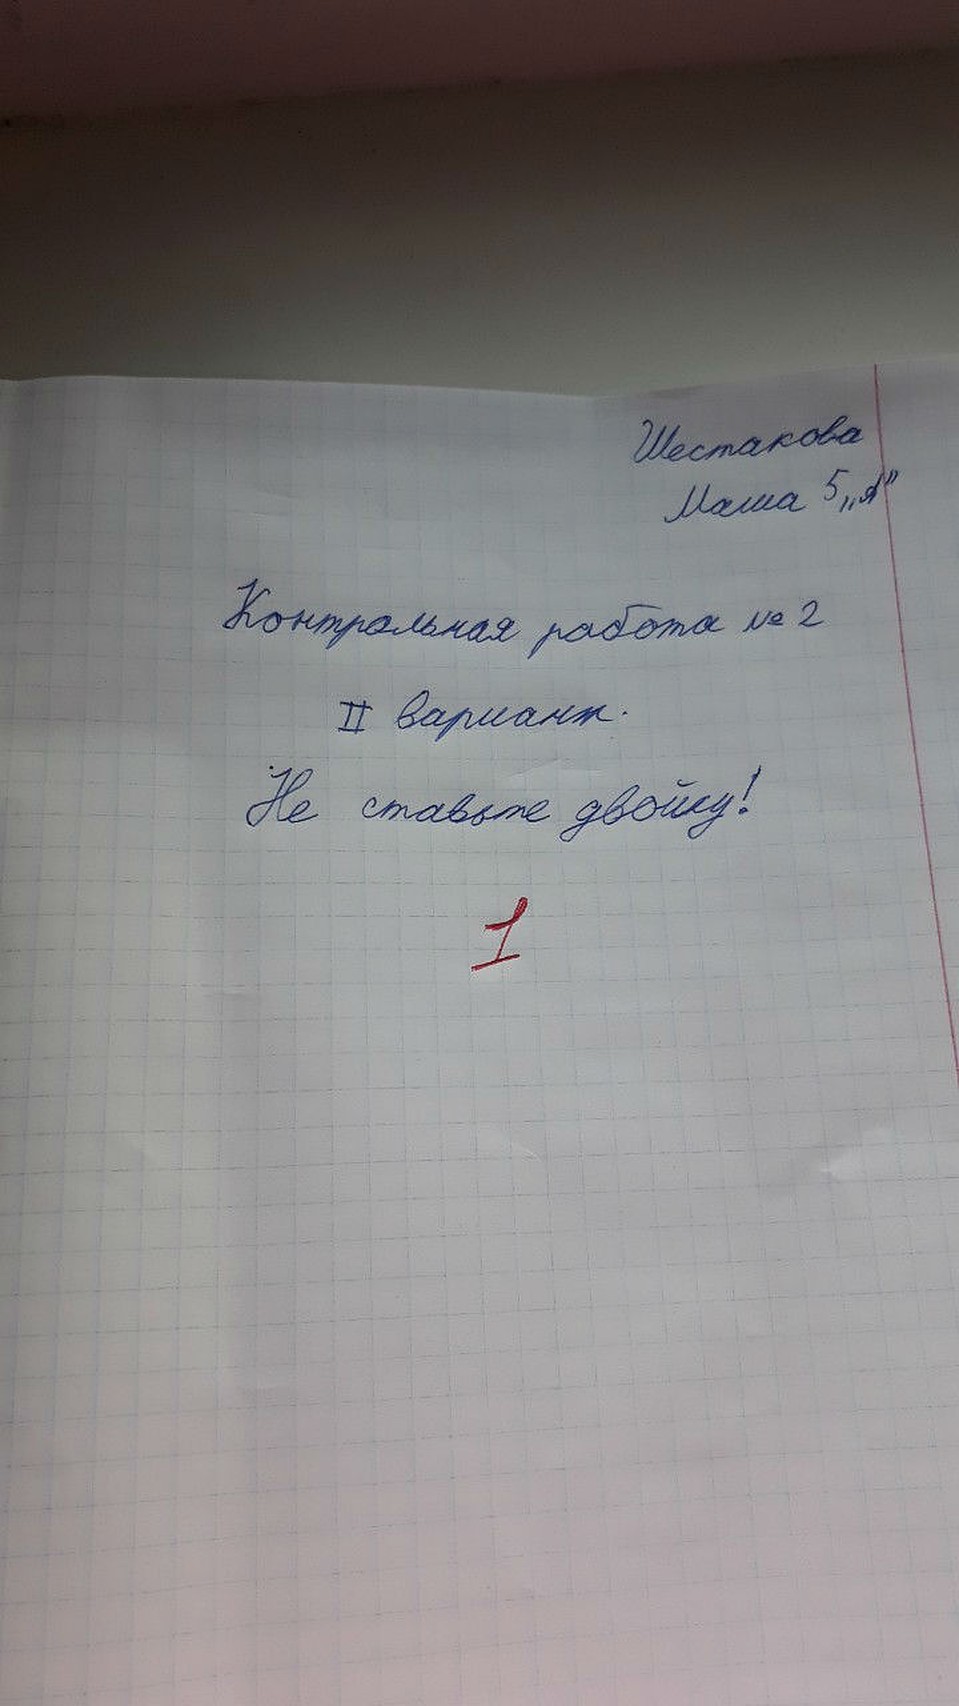 Шестакова
Маша 5 „А”
Контрольная работа № 2
II вариант.
Не ставьте двойку!
1